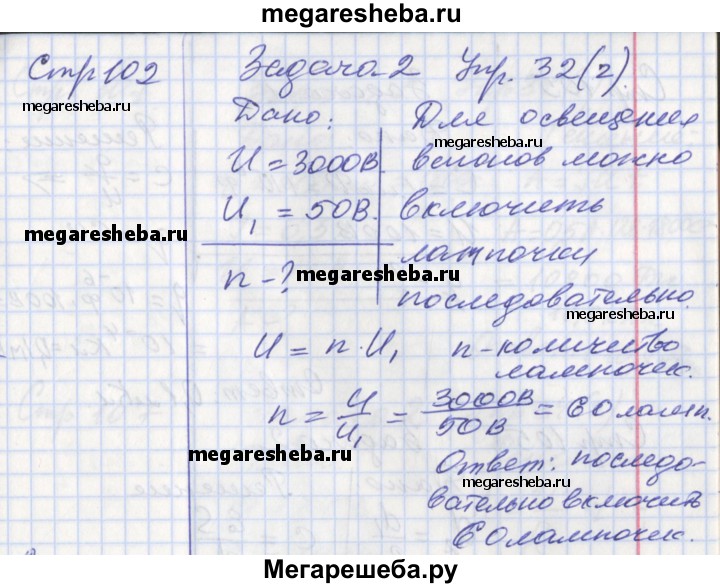 megaresheba.ru
Стр 102 Задача 2 Упр. 32(г).
megaresheba.ru
Дано: Для освещения
megaresheba.ru
U = 3000В. вагонов можно
U₁ = 50В. включить
megaresheba.ru
лампочки
n - ? megaresheba.ru
последовательно.
megaresheba.ru
U = n · U₁ n - количество
лампочек.
n = U/U₁ = 3000В/50В = 60 ламп.
megaresheba.ru
Ответ: последо-
megaresheba.ru
вательно включить
60 лампочек.
Мегарешеба.ру